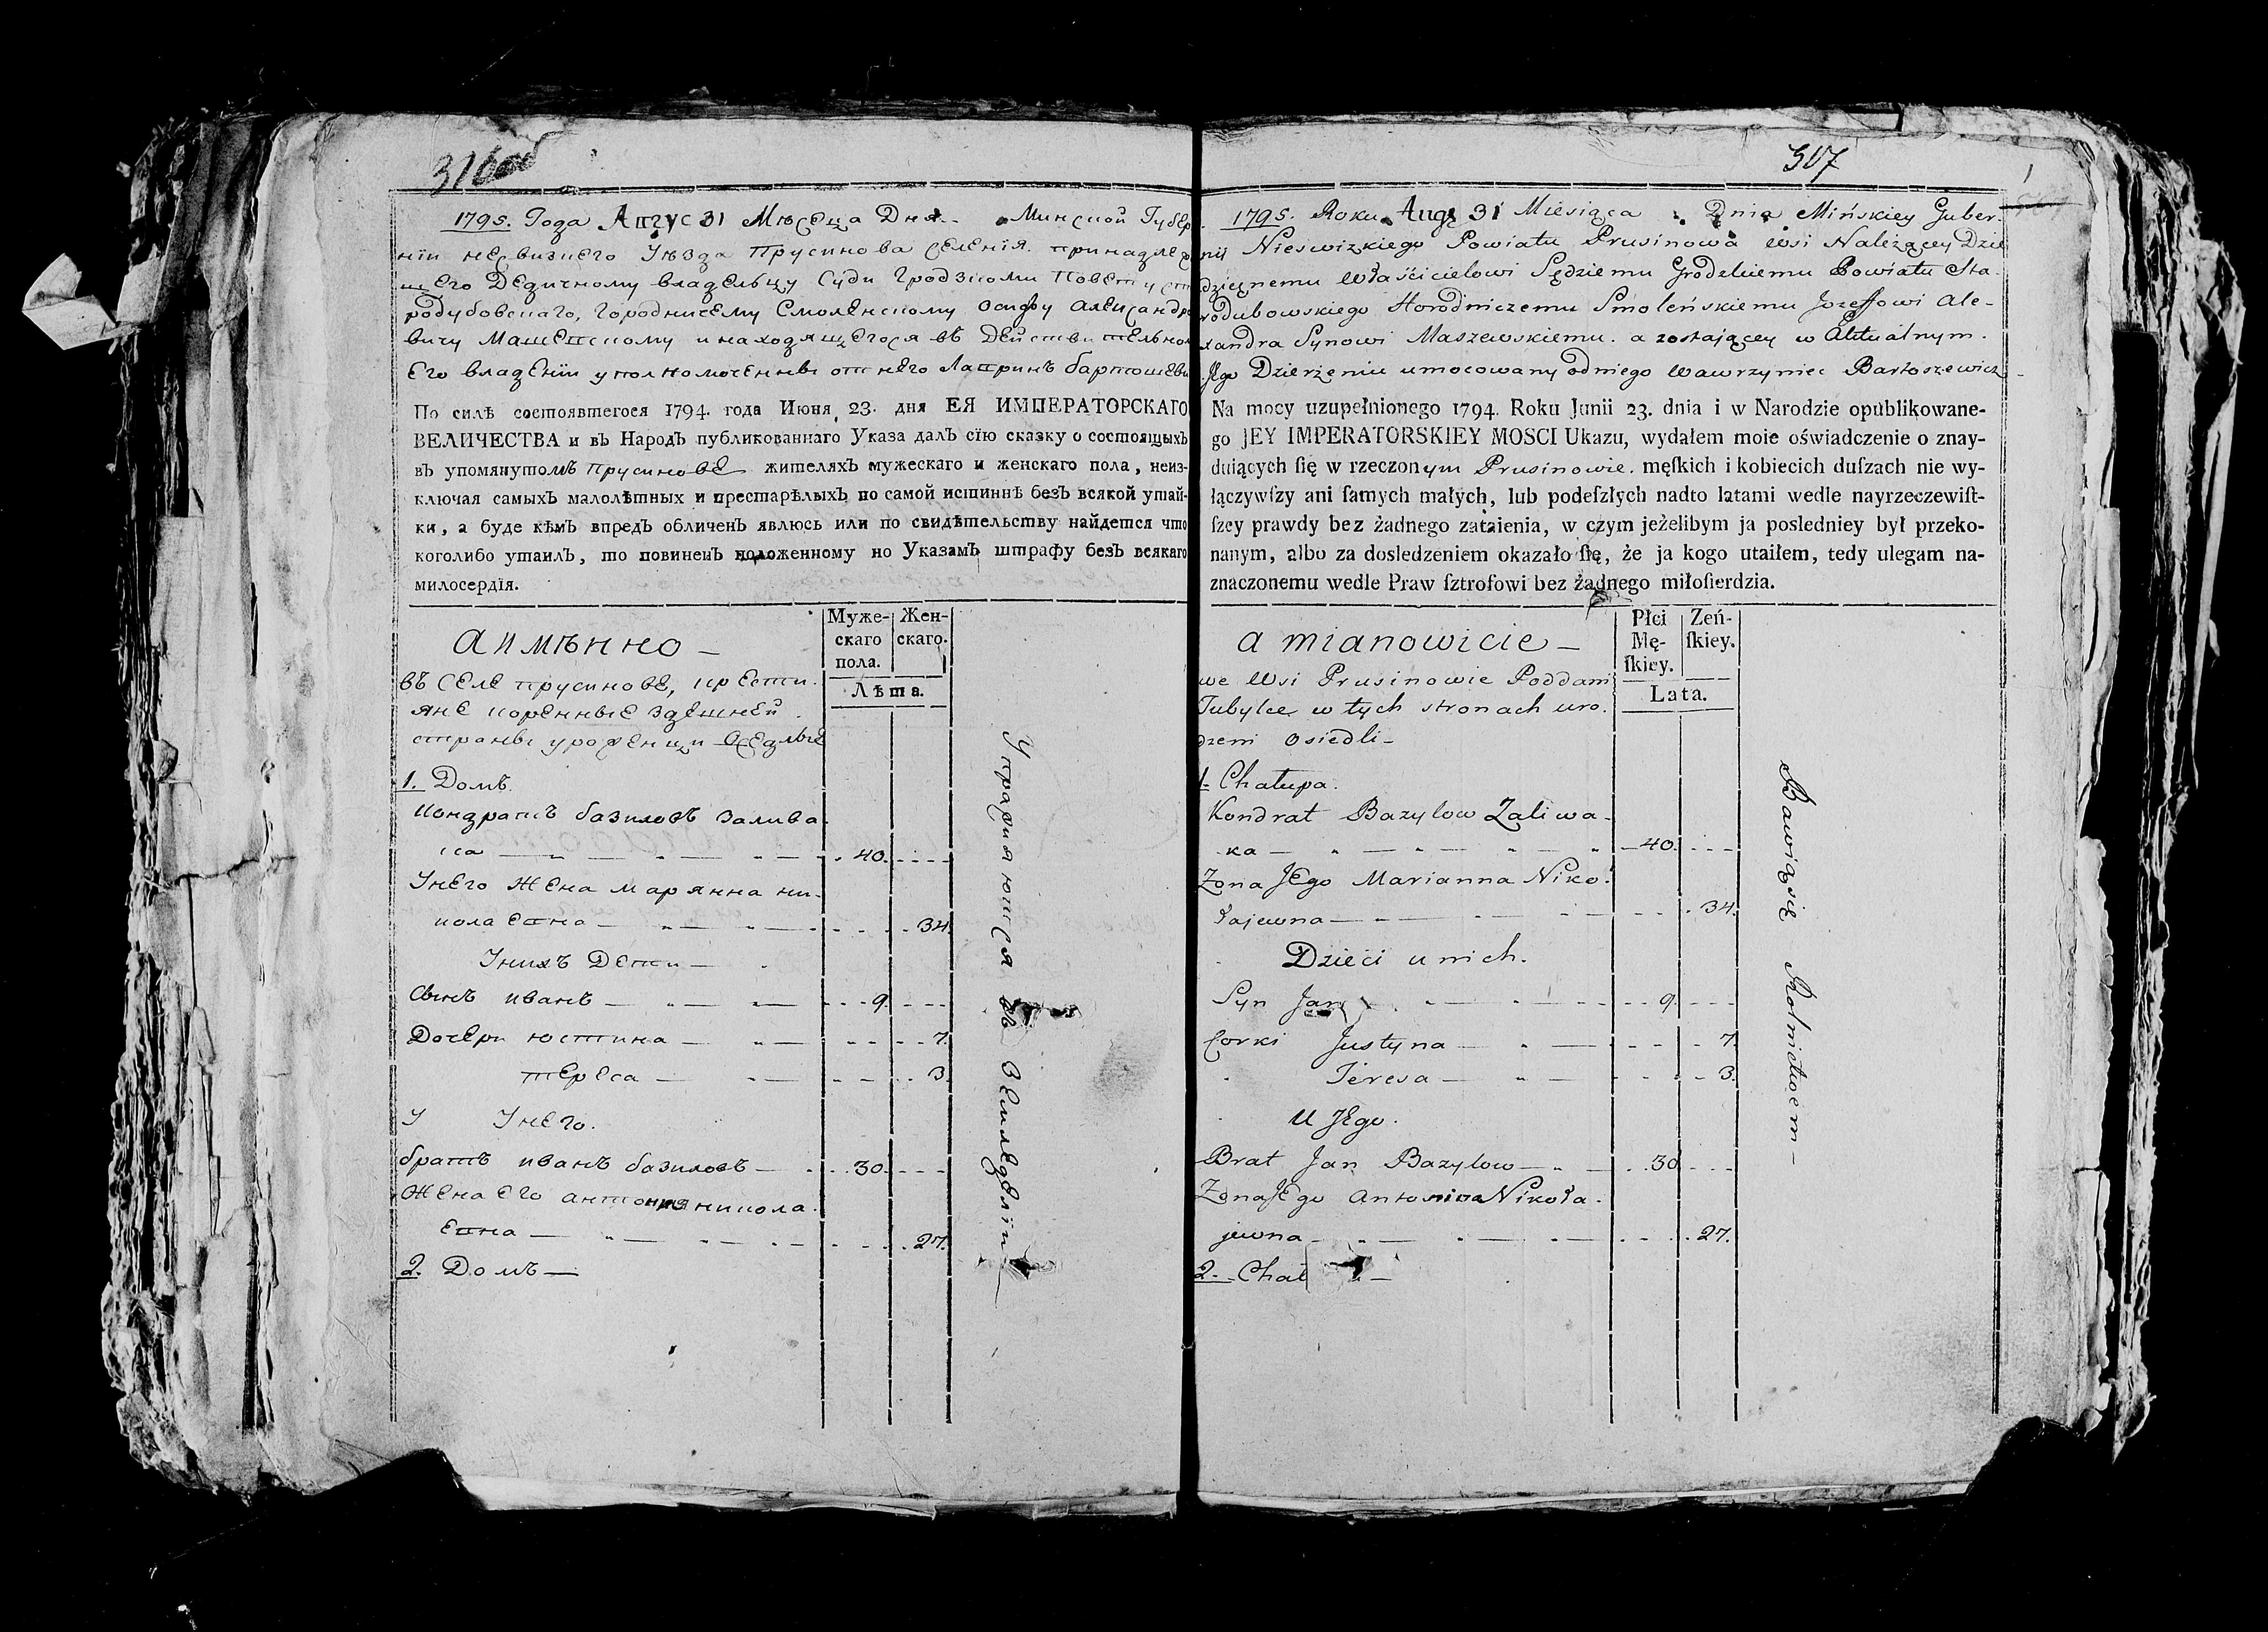 1795. Года Августа 31 Мѣсеца Дня Минской Губер
нїи несвизкего Уѣзда Прусинова селенїя принадлеж
щего Дедичному владельцу Суди Гродзкому Повету ст
родубовскаго, Городничему Смоленскому Осифу Александро
вичу Машевскому и находящегося въ Действительном
Его владенїи уполномоченны от него Лавринъ бартошеви
По силѣ состоявшегося 1794. года Июня 23. дня ЕЯ ИМПЕРАТОРСКАГО
ВЕЛИЧЕСТВА и въ Народъ публикованнаго Указа далъ сїю сказку о состоящыхъ
въ упомянутомъ Прусинове жителяхъ мужескаго и женскаго пола, неиз-
ключая самыхъ малолѣтных и престарѣлыхъ по самой истиннѣ безъ всякой утай-
ки, а буде кѣмъ впредъ обличенъ явлюсь или по свидѣтельству найдется что
коголибо утаилъ, то повиненъ положенному по Указамъ штрафу безъ всякаго
милосердїя.
Муже-
скаго
пола.
Жен-
скаго.
Лѣта.
а имѣнно —
въ селе прусинове, крести.
яне коренные здешней
страны уроженци оседлые
1. Домъ.
Кондратъ базиловъ Залива.
ка — 40.
Унего Жена марянна ни-
колаевна — 34.
Унихъ Дети —
Сынъ иванъ — 9.
Дочери юстина — 7.
тереса — 3.
У Унего.
братъ иванъ базиловъ — 30.
Жена его антония никола.
евна — 27.
2. Домъ —
Упражняются въ Земледелїи
307
1795. Roku Augs 31 Miesiąca Dnia Mińskiey Guber.
nij Nieswizkiego Powiatu Prusinowa wsi Należącey Dzie
dzicznemu Właścicielowi Sędziemu Grodzkiemu Powiatu Sta-
rodubowskiego Horodniczemu Smoleńskiemu Jozeffowi Ale-
xandra Synowi Maszewskiemu. a zostającey w Aktualnym.
Jego Dzierżeniu umocowany odniego Wawrzyniec Bartoszewicz
Na mocy uzupełnionego 1794. Roku Junii 23. dnia i w Narodzie opublikowane-
go JEY IMPERATORSKIEY MOSCI Ukazu, wydałem moie oświadczenie o znay-
duiących ſię w rzeczonym Prusinowie. męſkich i kobiecich duſzach nie wy-
łączywſzy ani ſamych małych, lub podeſzłych nadto latami wedle nayrzeczewiſt-
ſzey prawdy bez żadnego zataienia, w czym jeżelibym ja posledniey był przeko-
nanym, albo za dosledzeniem okazało ſię, że ja kogo utaiłem, tedy ulegam na-
znaczonemu wedle Praw ſztrofowi bez żadnego miłoſierdzia.
Płci
Mę-
ſkiey.
Zeń-
ſkiey.
Lata.
a mianowicie —
we Wsi Prusinowie Poddani
Tubylce w tych stronach uro.
dzeni osiedli —
1. Chałupa.
Kondrat Bazylow Zaliwa-
ka — 40.
Zona JEgo Marianna Niko.
łajewna — 34.
Dzieci unich.
Syn Jan — 9.
Corki Justyna — 7.
Teresa — 3.
U JEgo.
Brat Jan Bazylow — 30.
Zona JEgo Antonina Nikoła-
jewna — 27.
2. Chał
Bawią się Rolnictwem —